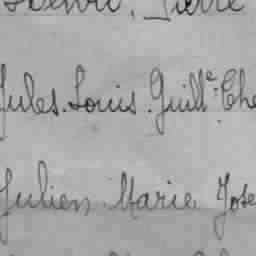 Henri, Pierre
Jules. Louis. Guill.e Che
Julien Marie Jose